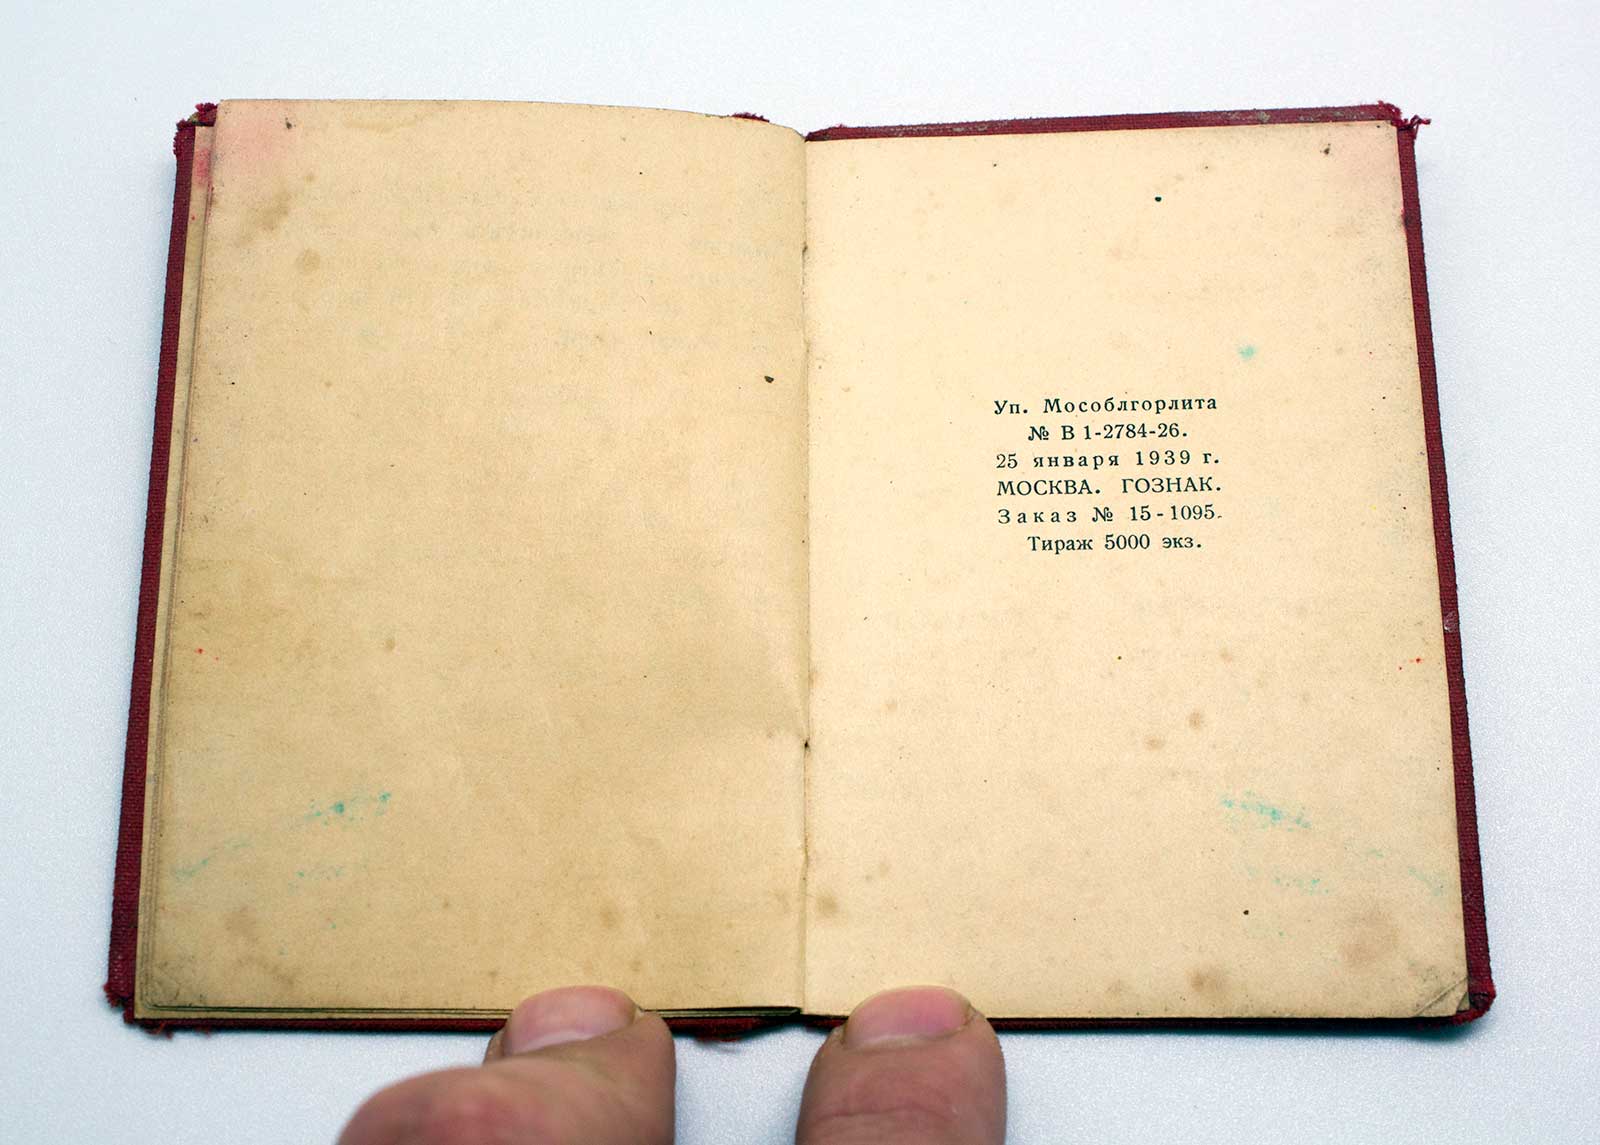 Уп. Мособлгорлита
№ В 1-2784-26.
25 января 1939 г.
МОСКВА. ГОЗНАК.
Заказ № 15-1095.
Тираж 5000 экз.